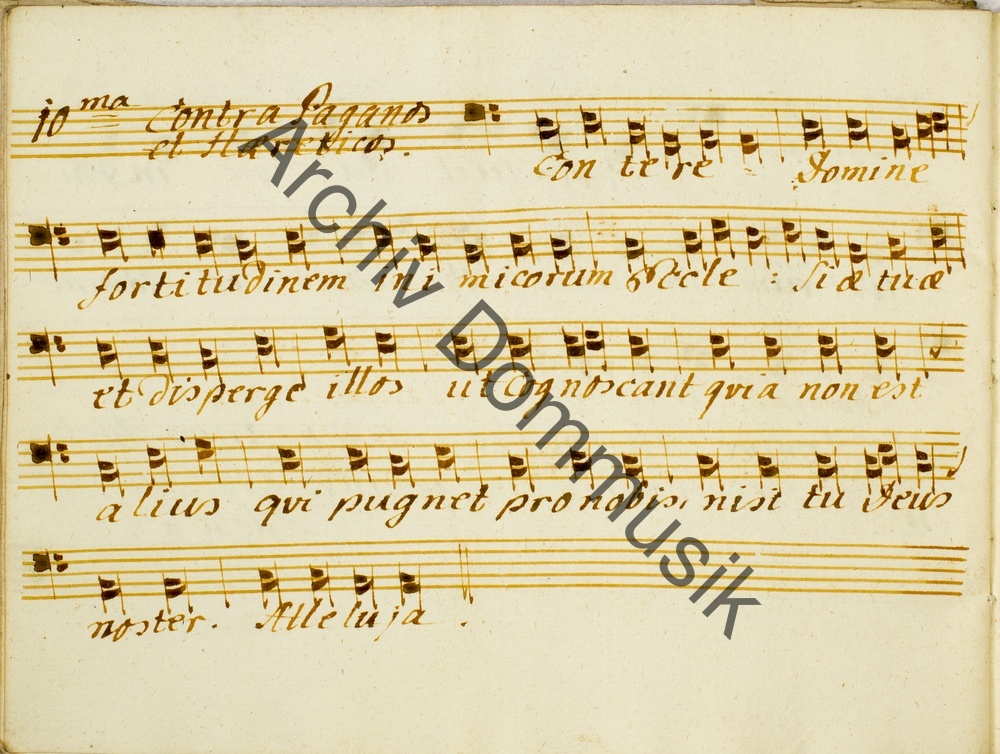 10ma Contra Paganos
et Haereticos.
Con te re Domine
fortitudinem ini micorum Eccle : siæ tuæ
et disperge illos ut cognoscant qvia non est
alius qvi pugnet pro nobis, nisi tu Deus
noster. Alleluja.
Archiv Dommusik